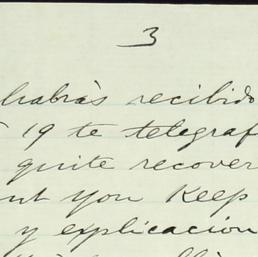 3
habràs recibido
19 te telegraf
quite recover
you Keep
y explicacion